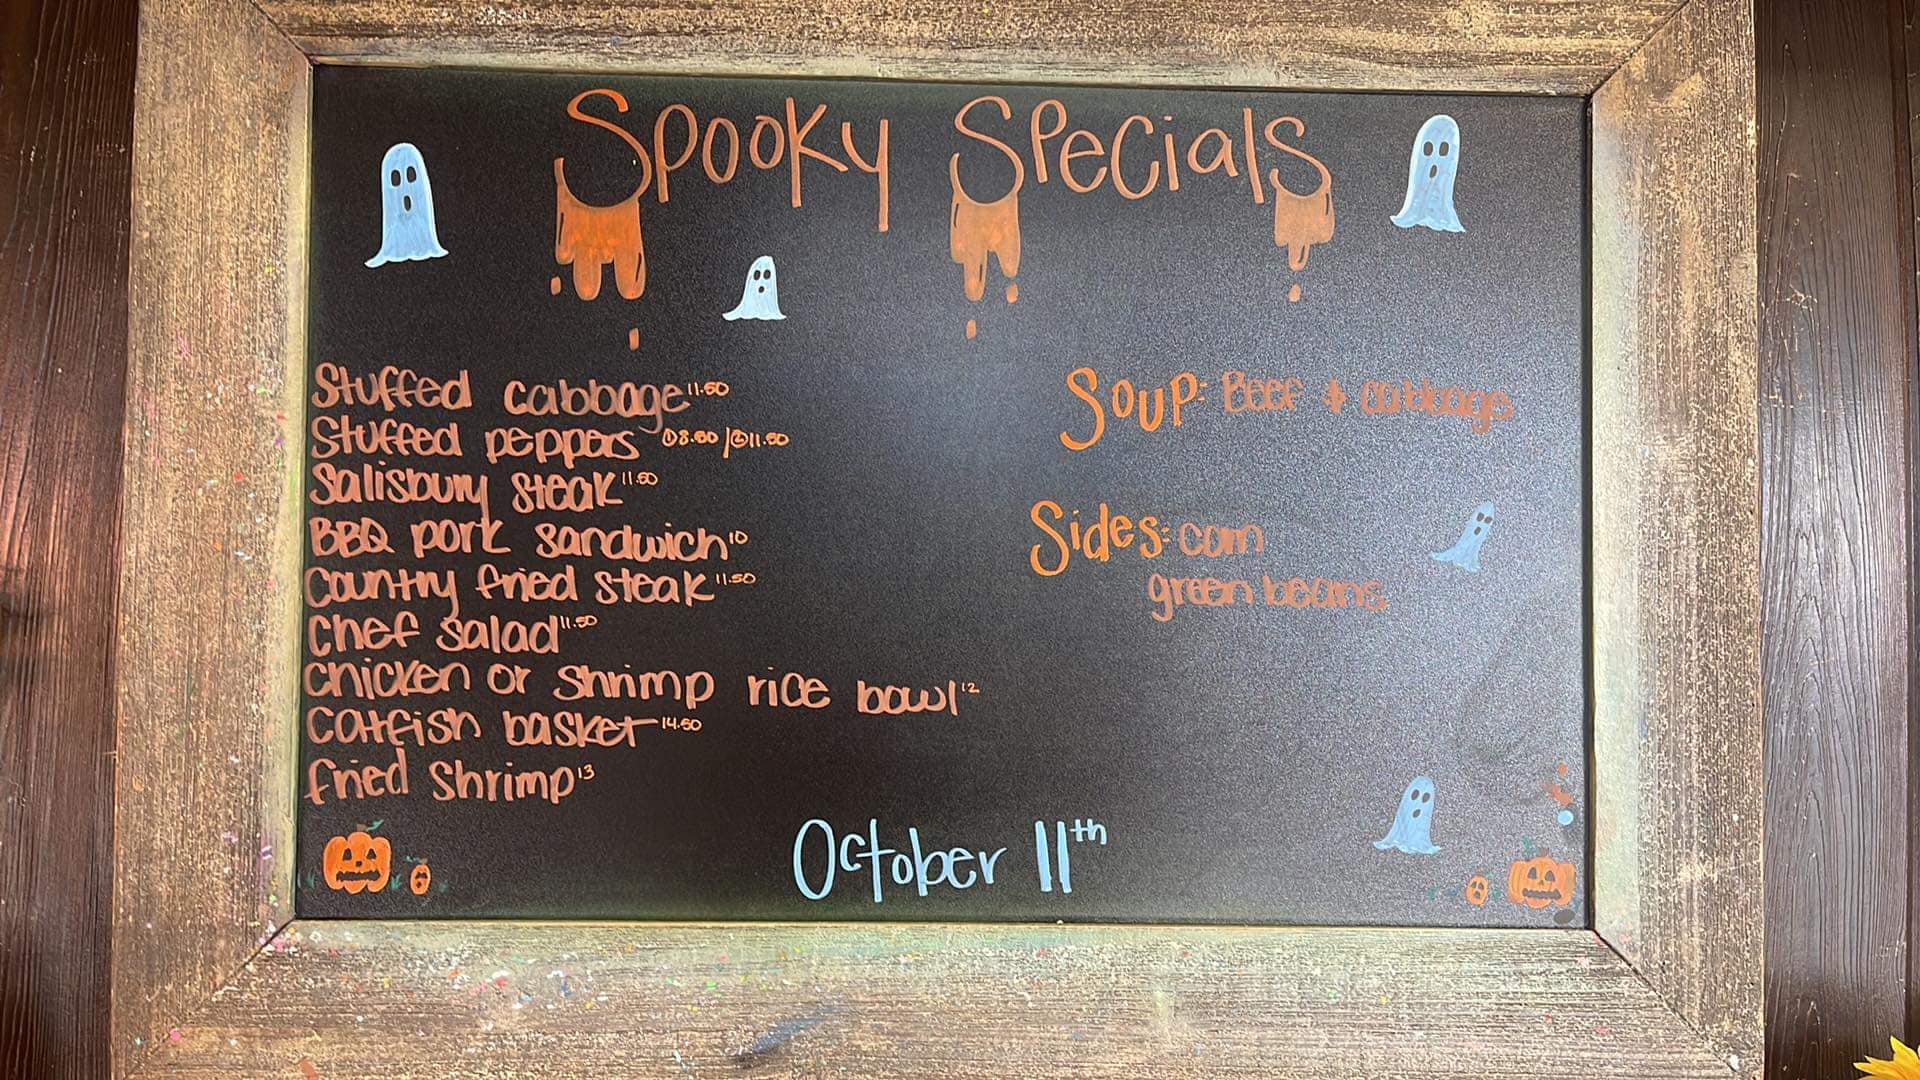 Spooky Specials
Stuffed cabbage 11.50
Stuffed peppers ①8.50/②11.50
Salisbury steak 11.50
BBQ pork sandwich 10
Country fried steak 11.50
Chef salad 11.50
Chicken or shrimp rice bowl 12
Catfish basket 14.50
Fried Shrimp 13
Soup: Beef & cabbage
Sides: corn
green beans
October 11th